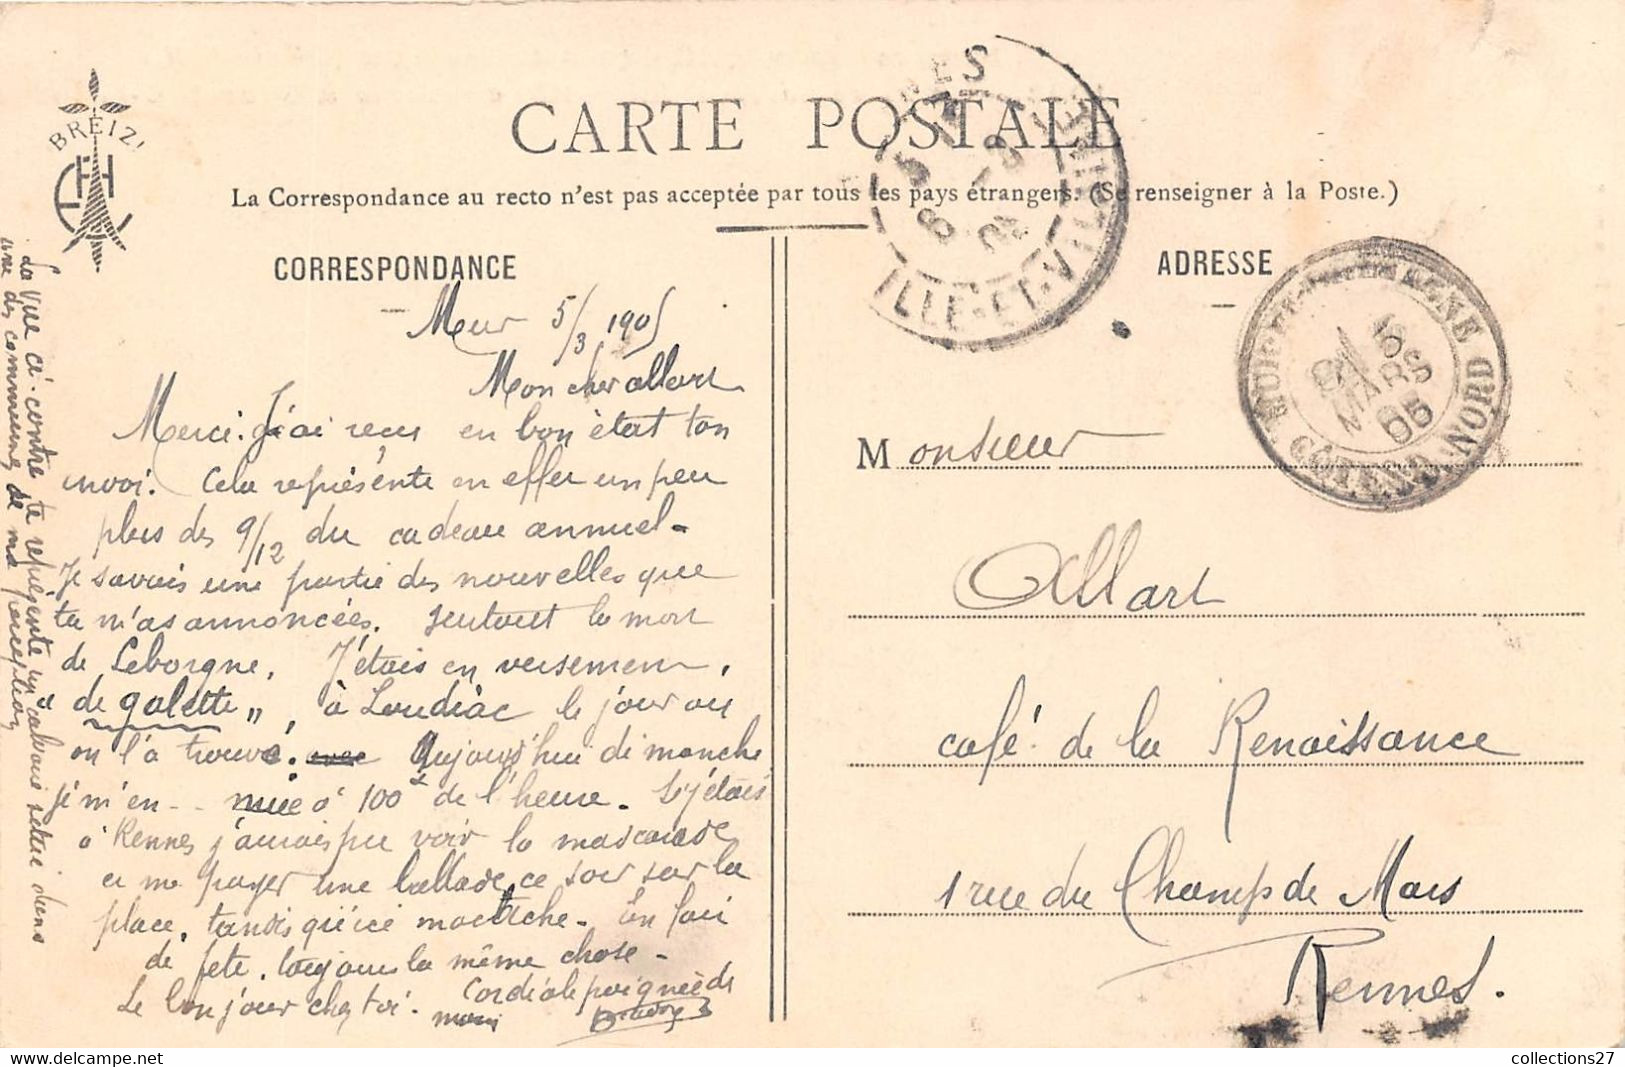 CARTE POSTALE
La Correspondance au recto n'est pas acceptée par tous les pays étrangers. (Se renseigner à la Poste.)
BREIZ
CORRESPONDANCE
Mur 5/3 1905
Mon cher allart
Merci. J'ai reçu en bon état ton
envoi. Cela représente en effet un peu
plus des 9/12 du cadeau annuel-
Je savais une partie des nouvelles que
tu m'as annoncées, surtout la mort
de Leborgne. J'étais en versement,
" de galette ", à Loudéac le jour où
on l'a trouvé. Aujourd'hui dimanche
je m'en - - à 100 de l'heure. Si j'étais
à Rennes j'aurais pu voir la mascarade
et me payer une ballade ce soir sur la
place, tandis qu'ici moustache. En fait
de fête, toujours la même chose-
Le bonjour chez toi. Cordiale poignée de
main
La vue ci-contre te représente un calvaire situé dans
une des communes de ma perception
ADRESSE
Monsieur
Allart
café de la Renaissance
1 rue du Champ de Mars
Rennes.
ILLE-ET-VILAINE
5 MARS 05
COTES-DU-NORD
collections27